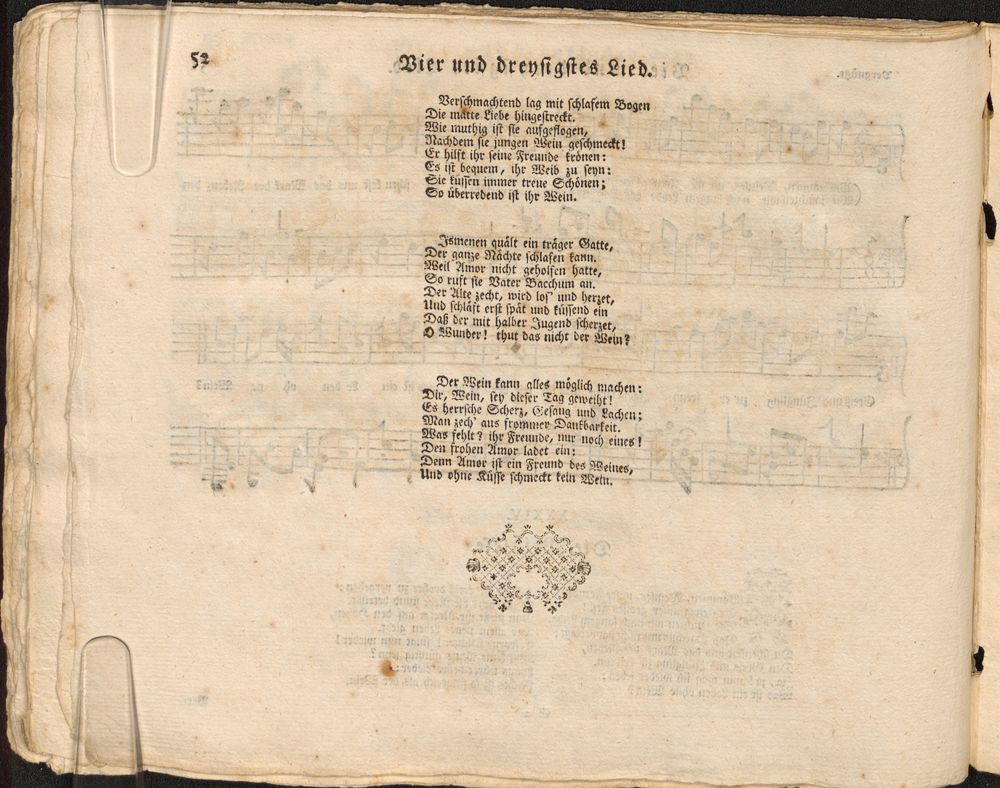 52
Vier und dreysigstes Lied.
Verschmachtend lag mit schlafem Bogen
Die matte Liebe hingestreckt.
Wie muthig ist sie aufgeflogen,
Nachdem sie jungen Wein geschmeckt!
Er hilft ihr seine Freunde krönen:
Es ist bequem, ihr Weib zu seyn:
Sie küssen immer treue Schönen;
So überredend ist ihr Wein.
Ismenen quält ein träger Gatte,
Der ganze Nächte schlafen kann.
Weil Amor nicht geholfen hatte,
So ruft sie Vater Bacchum an.
Der Alte zecht, wird los' und herzet,
Und schläft erst spät und küssend ein
Daß der mit halber Jugend scherzet,
O Wunder! thut das nicht der Wein?
Der Wein kann alles möglich machen:
Dir, Wein, sey dieser Tag geweiht!
Es herrsche Scherz, Gesang und Lachen;
Man zech' aus frommer Dankbarkeit.
Was fehlt? ihr Freunde, nur noch eines!
Den frohen Amor ladet ein:
Denn Amor ist ein Freund des Weines,
Und ohne Küsse schmeckt kein Wein.